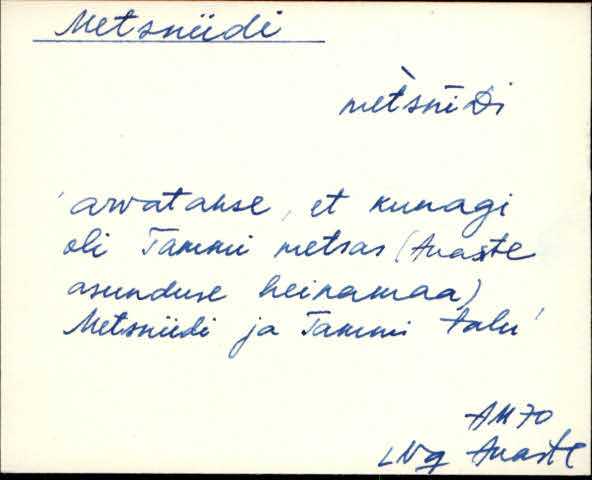 Metsniidi
mètsnīDi
'arvatakse, et kunagi
oli Tammi metsas (Avaste
asunduse heinamaa)
Metsniidi ja Tammi talu'
AM70
LNg Avaste